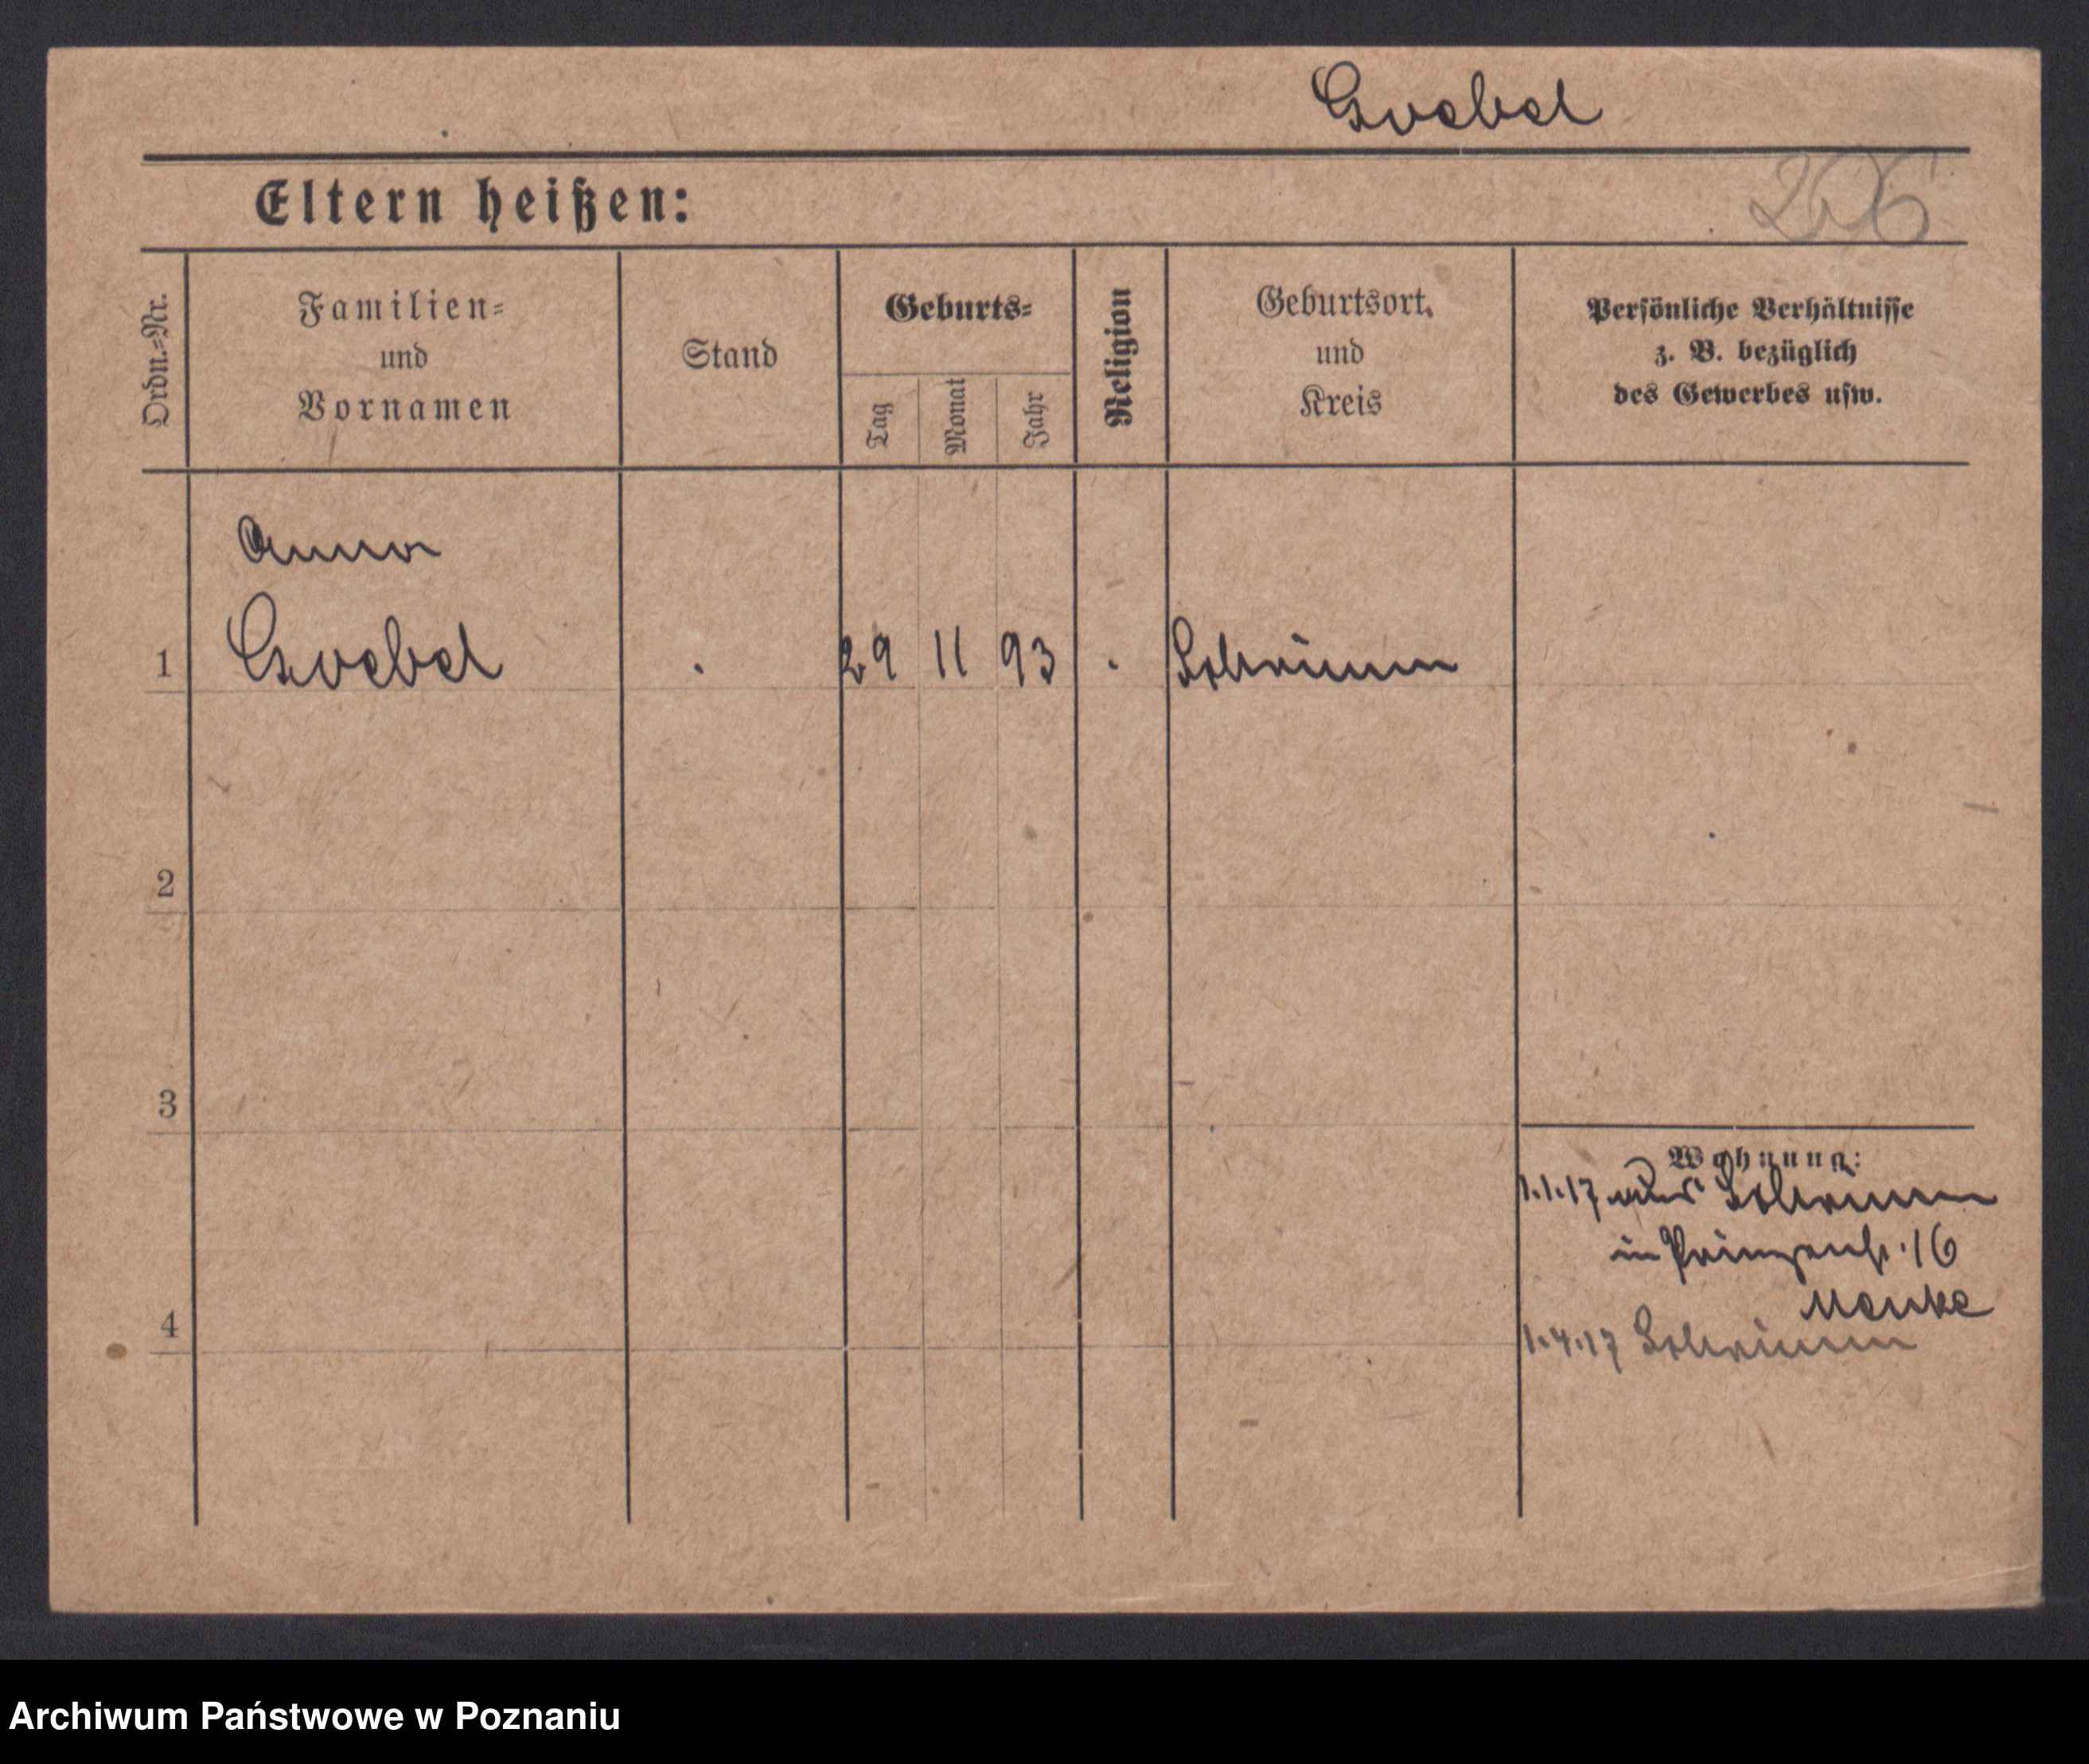 Goebel
Eltern heißen:
206
Ordn.=Nr.
Familien=
und
Vornamen
Stand
Geburts=
Tag
Monat
Jahr
Religion
Geburtsort.
und
Kreis
Persönliche Verhältnisse
z. B. bezüglich
des Gewerbes usw.
Anna
1 Goebel 29 11 93 Schrimm
2
3
Wohnung:
1.1.17 aus Schrimm
in Prinzenstr. 16
Menke
4
1.4.17 Schrimm
Archiwum Państwowe w Poznaniu